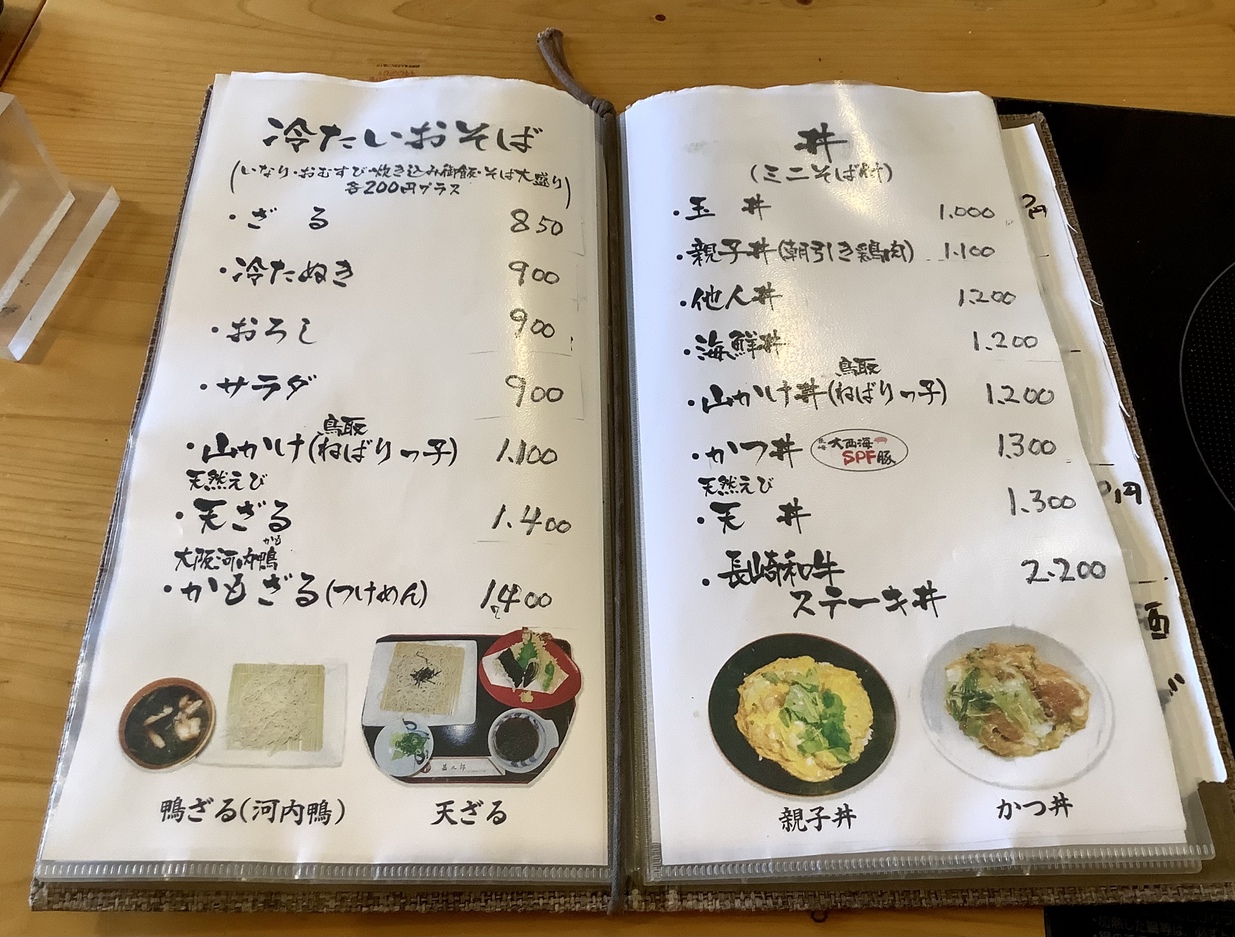 冷たいおそば
(いなり・おむすび・炊き込み御飯・そば大盛り)
各200円プラス
・ざる 850
・冷たぬき 900
・おろし 900
・サラダ 900
鳥取
・山かけ(ねばりっ子) 1.100
天然えび
・天ざる 1.400
かも
大阪河内鴨
・かもざる(つけめん) 1400
鴨ざる(河内鴨)
天ざる
丼
(ミニそば付)
・玉丼 1.000
・親子丼(朝引き鶏肉) 1.100
・他人丼 1.200
・海鮮丼 1.200
鳥取
・山かけ丼(ねばりっ子) 1.200
・かつ丼 長崎 大西海 SPF豚 1.300
天然えび
・天丼 1.300
・長崎和牛 2.200
ステーキ丼
親子丼
かつ丼
円
円